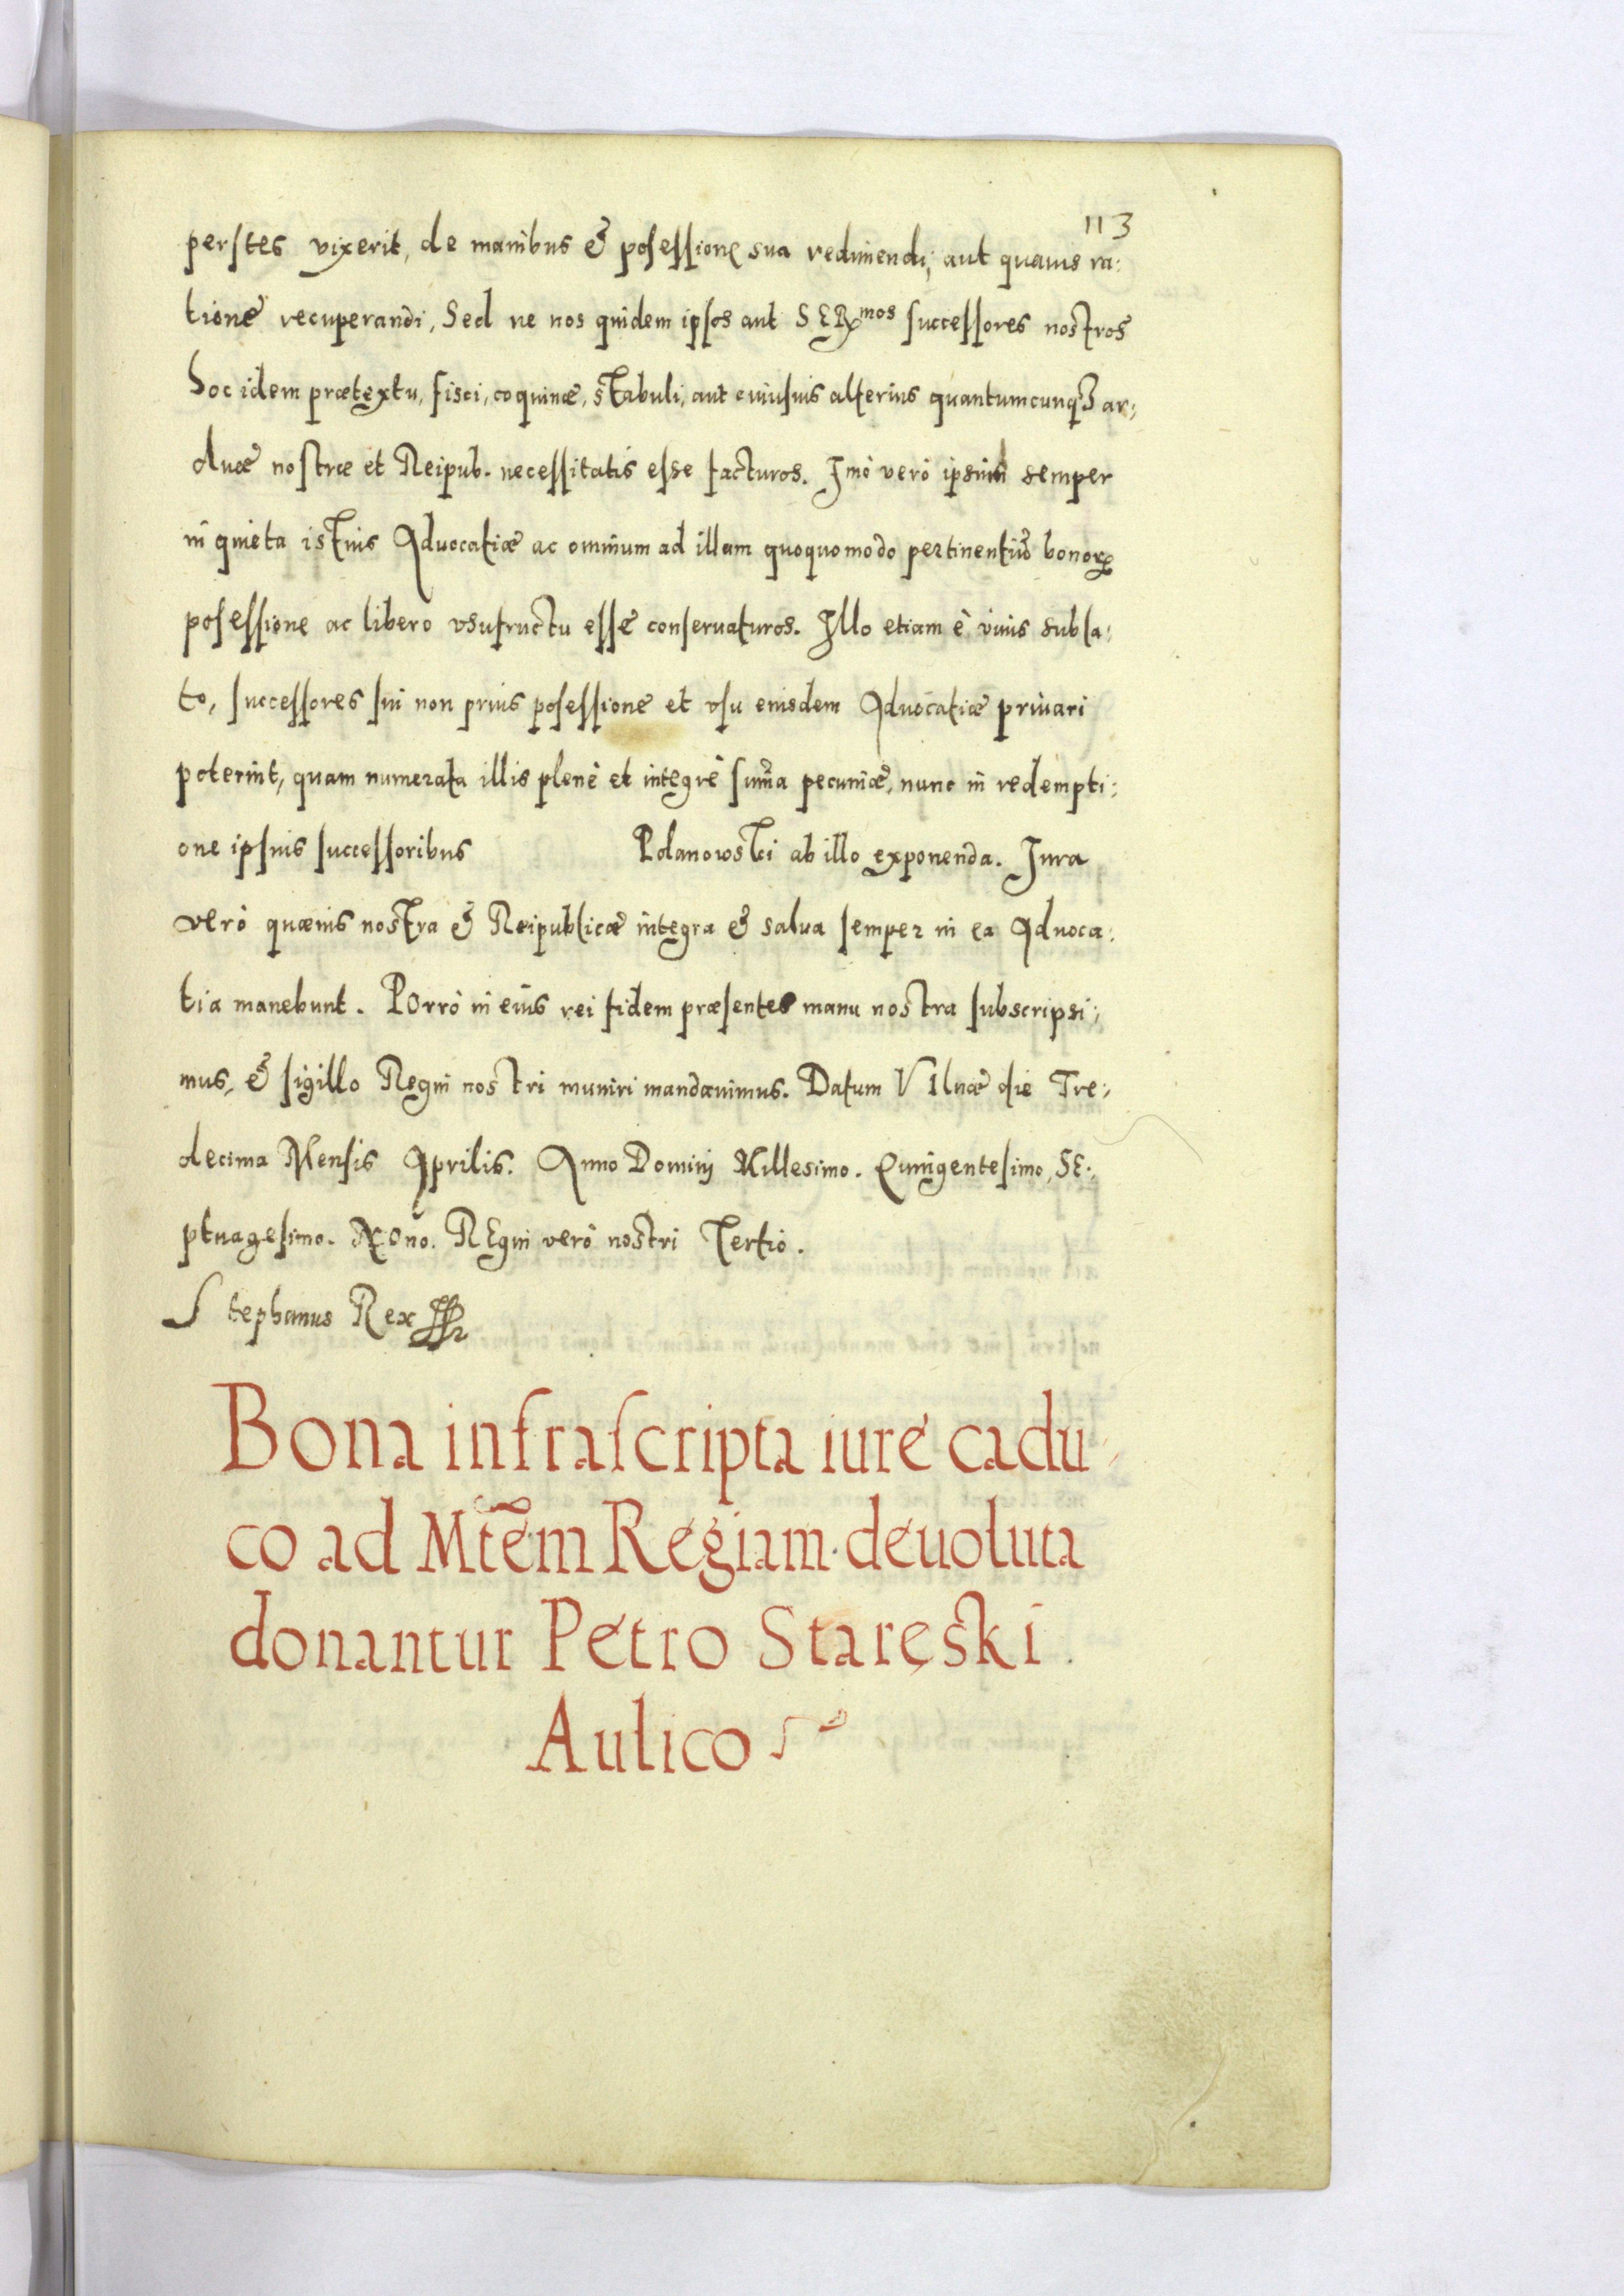 113
perstes vixerit, de manibus & posessione sua redimendi, aut quauis ra:
tione recuperandi, Sed ne nos quidem ipsos aut SERmos successores nostros
hoc idem prætextu, fisci, coquinæ, stabuli, aut cuiusuis alterius quantumcunq3 ar:
duæ nostræ et Reipub. necessitatis esse facturos. Imò verò ipsum semper
in quieta istius Aduocatiæ ac omnium ad illam quoquomodo pertinentiū bonorꝝ
posessione ac libero vsufructu esse conseruaturos. Illo etiam è viuis subla:
to, successores sui non prius posessione et vsu eiusdem Aduocatiæ priuari
poterint, quam numerata illis plenè et integrè sum̃a pecuniæ, nunc in redempti:
one ipsius successoribus Polanowski ab illo exponenda. Iura
verò quæuis nostra & Reipublicæ integra & salua semper in ea Aduoca:
tia manebunt. POrrò in eius rei fidem præsentes manu nostra subscripsi:
mus, & sigillo Regni nostri muniri mandauimus. Datum VIlnæ die Tre:
decima Mensis Aprilis. Anno Domini Millesimo. Quingentesimo, SE:
ptuagesimo. NOno. REgni verò nostri Tertio.
Stephanus Rex
Bona infrascripta iure cadu:
co ad Mtēm Regiam deuoluta
donantur Petro Staręski
Aulico